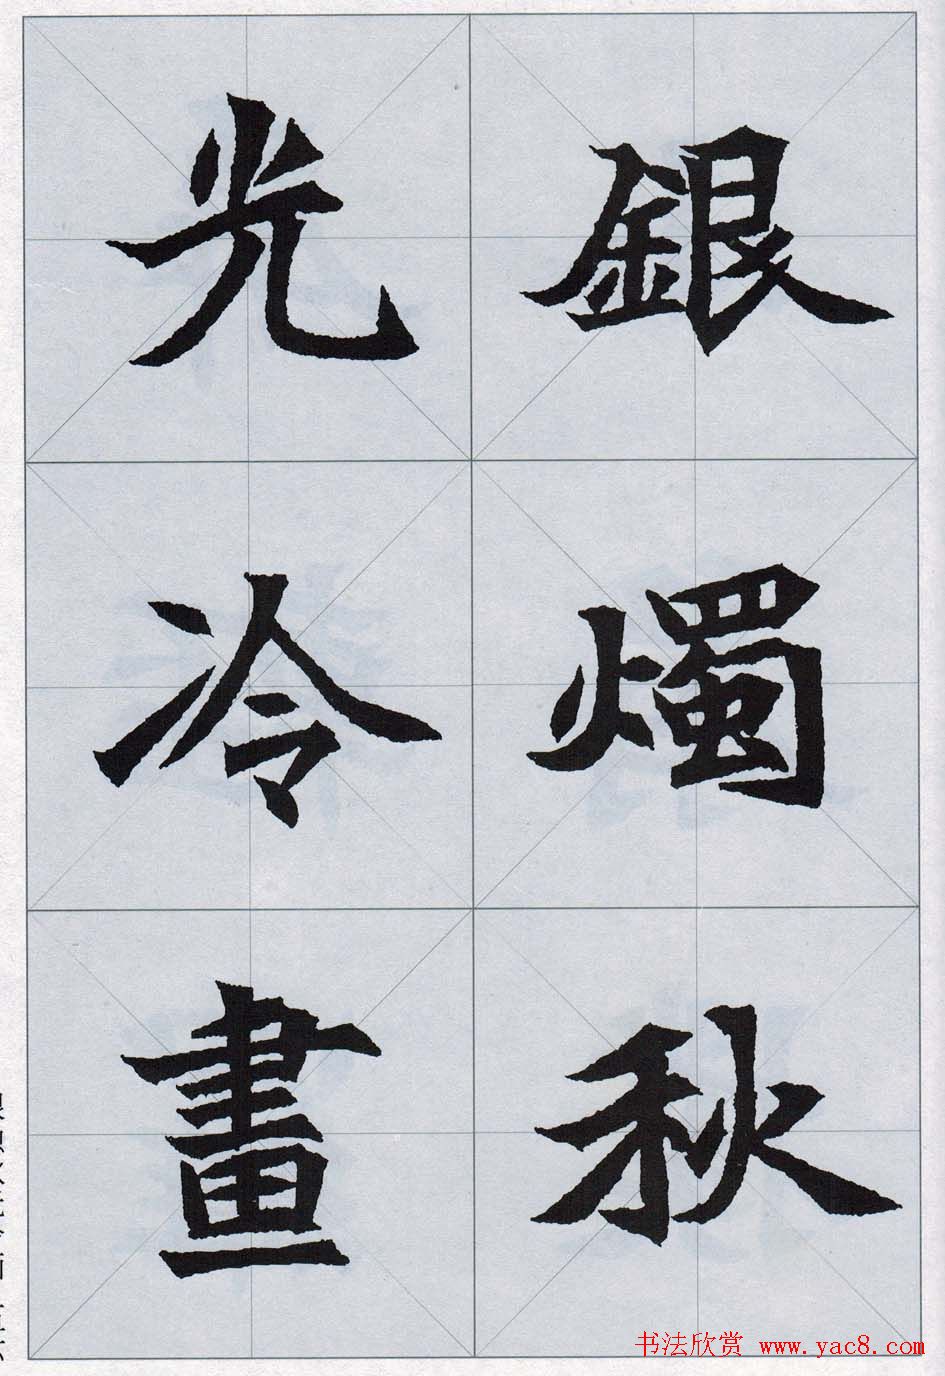 銀燭秋
光冷畫
书法欣赏 www.yac8.com